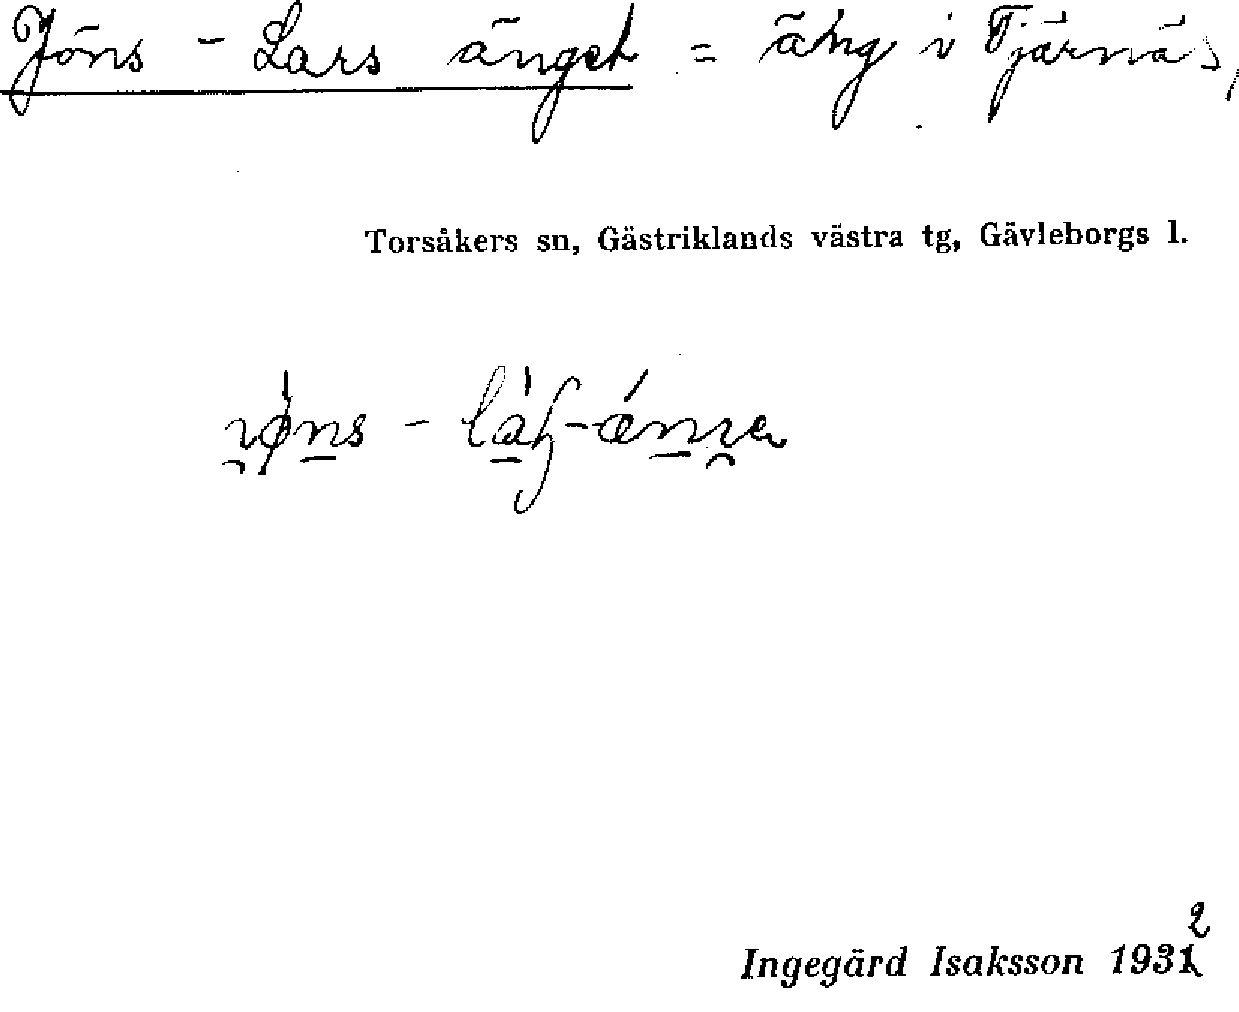 Jöns - Lars änget = äng i Tjärnäs,
Torsåkers sn, Gästriklands västra tg, Gävleborgs l.
2
Ingegärd Isaksson 1931